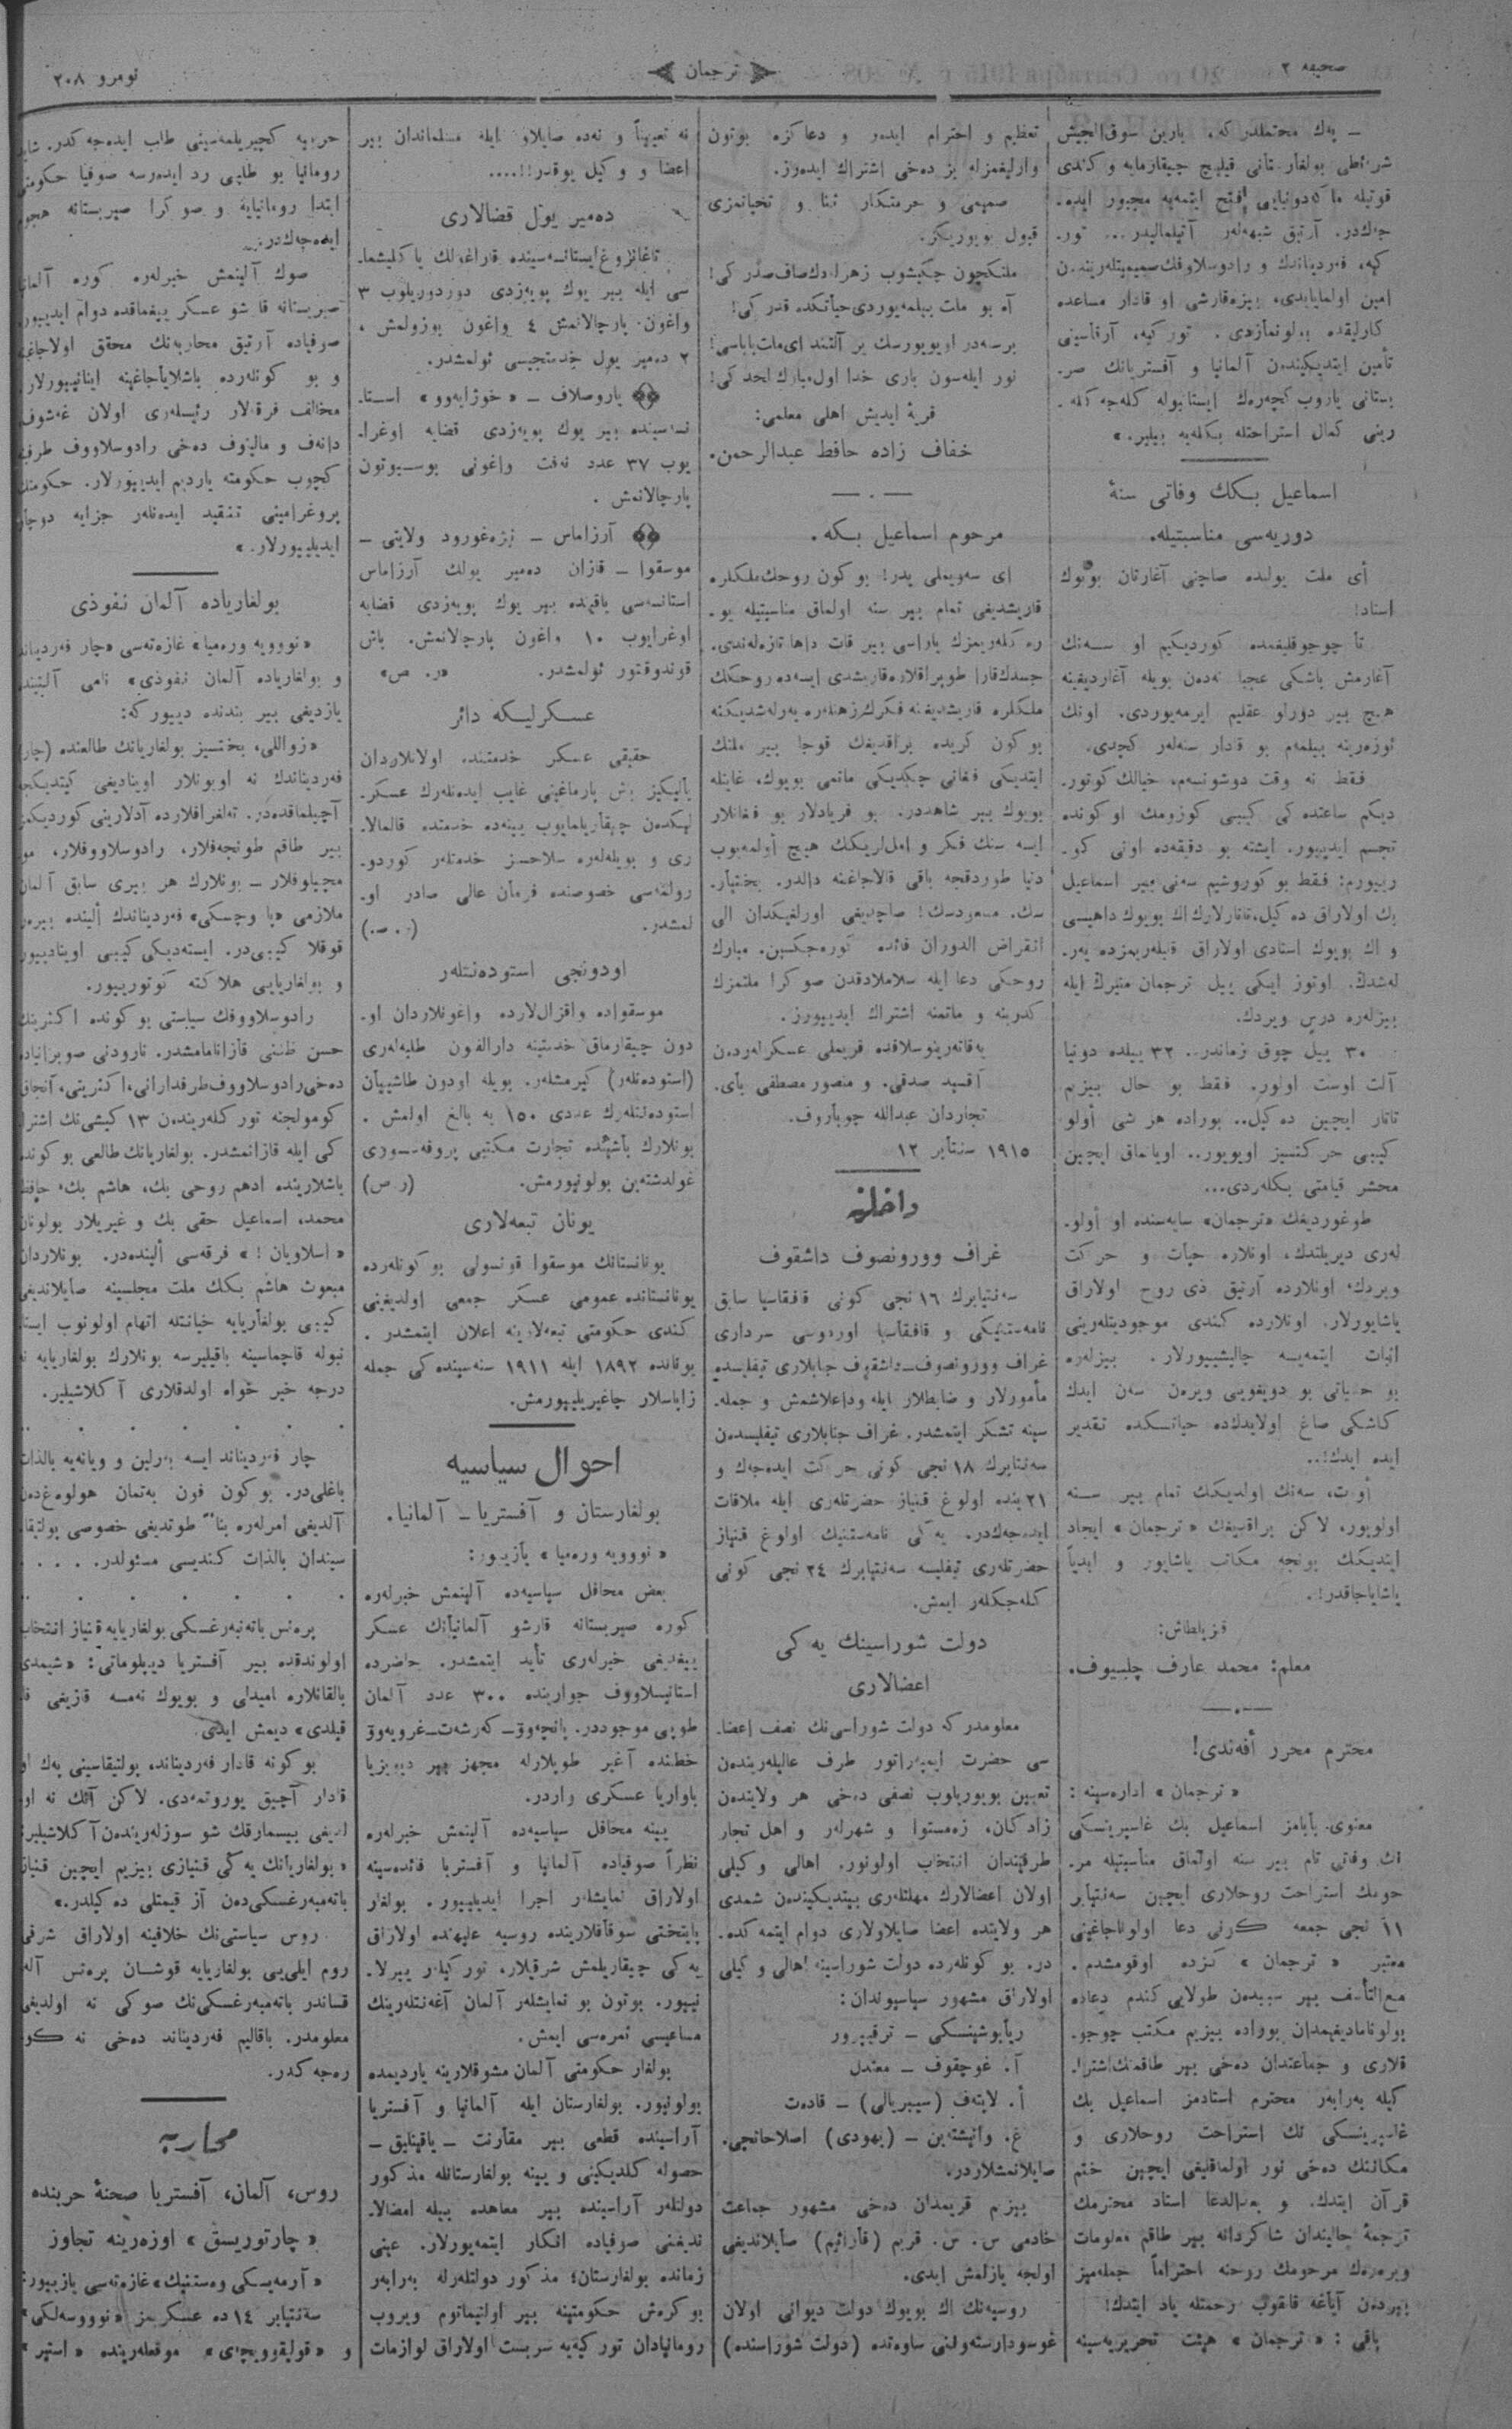 صحیفه ٢
ترجمان
نومرو ٢٠٨
ـ پەك محتملدر كه، یارین سوق‌الجیش
شرائطی بولغارستانی قیلیچ چیقارمایه و كندی
جەك‌در. آرتیق شبهه‌لەر آتیلمالیدر... تور-
كیه، فەردیناندك و رادوسلاوفك صمیمیتلەریندەن
امین اولمایایدی، بیزه قارشی او قادار مساعده
كارلیقده بولونمازدی. توركیه، آرقاسینی
تأمین ایتدیكیندەن آلمانیا و آفستریانك صر-
بستانی یاروب كچەرەك ایستانبوله كلەجەكلە-
رینی كمال استراحتله بكلەیه بیلیر.»
اسماعیل بكك وفاتی سنهٔ
دوریەسی مناسبتیله.
أی ملت یولنده صاچنی آغارتان بویوك
استاد!
تا چوجوقلیغمده كوردیكیم او سەنك
آغارمش باشكی عجبا نەدەن بویله آغاردیغینه
هیچ بیر دورلو عقلیم ایرمەیوردی. اونك
ئوزەرینه بیلمەم بو قادار سنەلەر كچدی.
فقط نه وقت دوشونسەم، خیالك كوتور-
دیكم ساعتده كی كیبی كوزومك اوكونده
تجسم ایدییور. ایشته بو دقیقەده اونی كو-
رییورم: فقط بو كوروشیم سەنی بیر اسماعیل
بك اولاراق دەكیل، تاتارلارك اك بویوك داهیسی
و اك بویوك استادی اولاراق قبلەریمزده یەر-
لەشدك. اوتوز ایكی ییل ترجمان متبرك ایله
بیزلەره درس ویردك.
٣٠ ییل چوق زماندر.. ٣٢ ییلده دونیا
آلت اوست اولور. فقط بو حال بیزیم
تاتار ایچین دەكیل.. بوراده هر شی أولو
كیبی حركتسیز اویویور.. اویانماق ایچین
محشر قیامتی بكلەردی...
طوغوردیغك «ترجمان» سایەسنده او أولو-
لەری دیریلتدك، اونلاره حیات و حركت
ویردك، اونلارده آرتیق ذی روح اولاراق
یاشایورلار. اونلارده كندی موجودیتلەرینی
اثبات ایتمەیه چالیشییورلار. بیزلەره
بو حیاتی بو دویغویی ویرەن سەن ایدك
كاشكی صاغ اولایدك‌ده حیاتكده تقدیر
ایده ایدك!..
أوت، سەنك اولدیكك تمام بیر سنه
اولویور، لاكن براقدیغك «ترجمان» ایجاد
ایتدیكك یونجه مكاتب یاشایور و ابدیاً
یاشایاجاقدر!.
قزیلطاش:
معلم: محمد عارف چلبییوف.
محترم محرر أفەندی!
«ترجمان» ادارەسینه:
معنوی بابامز اسماعیل بك غاسپرینسكی
نك وفاتی تام بیر سنه اولماق مناسبتیله مر-
حومك استراحت روحلاری ایچین سەنتیابر
١١ نجی جمعه كونی دعا اولوناجاغینی
معتبر «ترجمان» كزده اوقومشدم.
مع‌التأسف بیر سببدەن طولایی كندم دعاده
بولوناماديغیمدان بوراده بیزیم مكتب چوجو-
قلاری و جماعتدان دەخی بیر طاقمنك اشترا-
كیله بەرابەر محترم استادمز اسماعیل بك
غاسپرینسكی نك استراحت روحلاری و
مكاننك دەخی نور اولماقلیغی ایچین ختم
قرآن ایتدك. و بعدالدعا استاد محترمك
ترجمهٔ حالیندان شاكردانه بیر طاقم معلومات
ویرەرەك مرحومك روحنه احتراماً جملەمیز
بیردەن آیاغه قالقوب رحمتله یاد ایتدك!
باقی: «ترجمان» هیئت تحریریەسینه
تعظیم و احترام ایدەر و دعاكزه بوتون
وارلیغمزله بز دەخی اشتراك ایدەرز.
صمیمی و حرمتكار ثنا و تحیاتمزی
قبول بویوریكز.
ملتكچون چكیشوب زهرلادك صاف صدر كی!
آه بو ملت بیلمەیوردی حیاتكده قدر كی!
نور ایلەسون باری خدا اول مبارك لحد كی!
قریهٔ ایدیش اهلی معلمی:
خفاف زاده حافظ عبدالرحمن.
مرحوم اسماعیل بكه.
ای سەویملی پدر! بوكون روحك ملكلره
قاریشدیغی تمام بیر سنه اولماق مناسبتیله یو-
رەكلەریمزك یاراسی بیر قات داها تازەلەندی.
جسدك قارا طوپراقلاره قاریشدی ایسەده روحكك
ملكلره قاریشدیغنه فكرك زهنلەره یەرلەشدیكنه
بوكون كریده براقدیغك قوجا بیر ملتك
ایتدیكی فغانی چكدیكی ماتمی بویوك، غایتله
بویوك بیر شاهددر. بو فریادلار بو فغانلار
ایسه سنك فكر و امل‌لریكك هیچ أولمەیوب
دنیا طوردقجه باقی قالاجاغنه دالدر. بختیار-
سك. مسعودسك! صاچدیغی اورلغیكدان الی
انقراض الدوران فائده كورەجكسین. مبارك
روحكی دعا ایله سلاملادقدن صوكرا ملتمزك
كدرینه و ماتمنه اشتراك ایدییورز.
یەقاتەرینوسلاوده قریملی عسكرلەردەن
آفسید صدقی. و منصور مصطفی بای.
تجاردان عبدالله چوپاروف.
١٩١٥ سنتابر ١٢
داخلیه
غراف وورونصوف داشقوف
سەنتیابرك ١٦ نجی كونی قافقاسیا سابق
نامەستنیكی و قافقاسیا اوردوسی سرداری
غراف وورونصوف‌ـ‌داشقوف جنابلاری تیفلیسده
مأمورلار و ضابطلار ایله وداعلاشمش و جمله-
سینه تشكر ایتمشدر. غراف جنابلاری تیفلیسدەن
سەنتابرك ١٨ نجی كونی حركت ایدەجەك و
٢١ ینده اولوغ قنیاز حضرتلەری ایله ملاقات
ایدەجەك‌در. یەكی نامەستنیك اولوغ قنیاز
حضرتلەری تیفلیسه سەنتیابرك ٢٤ نجی كونی
كلەجكلەر ایمش.
دولت شوراسینك یەكی
اعضالاری
معلومدر كه دولت شوراسی‌نك نصف اعضا-
سی حضرت ایمپەراتور طرف عالیلەریندەن
تعیین بویوریلوب نصفی دەخی هر ولایتدەن
زادكان، زەمستوا و شهرلەر و اهل تجار
طرفیندان انتخاب اولونور. اهالی وكیلی
اولان اعضالارك مهلتلەری بیتدیكیندەن شمدی
هر ولایتده اعضا صایلاولاری دوام ایتمەكده-
در. بو كونلەرده دولت شوراسینه اهالی وكیلی
اولاراق مشهور سیاسیوندان:
ریابوشینسكی ـ ترقیپرور
آ. غوچقوف ـ معتدل
أ. لاپتەف (سیبریالی) ـ قادەت
غ. واینشتەین ـ (یهودی) اصلاحاتجی.
صایلانمشلاردر.
بیزیم قریمدان دەخی مشهور جماعت
خادمی س. س. قریم (قارائیم) صایلاندیغی
اولجه یازلمش ایدی.
روسیەنك اك بویوك دولت دیوانی اولان
غوسودارستەوننی ساوەتده (دولت شوراسنده)
نه تعییناً و نەده صایلاو ایله مسلماندان بیر
اعضا و وكیل یوقدر!!....
دەمیر یول قضالاری
تاغانروغ ایستانسەسینده قاراغەلك یاكلیشما-
سی ایله بیر یوك پویەزدی دوردوریلوب ٣
واغون پارچالانمش ٤ واغون بوزولمش،
٢ دەمیر یول خدمتجیسی ئولمشدر.
یاروصلاف ـ «خوژایەوو» استا-
نسەسینده بیر یوك پویەزدی قضایه اوغرا-
یوب ٣٧ عدد نەفت واغونی بوسبوتون
پارچالانمش.
آرزاماس ـ نیژەغورود ولایتی ـ
موسقوا ـ قازان دەمیر یولك آرزاماس
استانسەسی یاقینده بیر یوك پویەزدی قضایه
اوغرایوب ١٠ واغون پارچالانمش. باش
قوندوقتور ئولمشدر. «ر. ص»
عسكرلیكه دائر
حقیقی عسكر خدمتنده اولانلاردان
یالیكیز بش پارماغینی غایب ایدەنلەرك عسكر-
لیكدەن چیقاریلمایوب یینەده خدمتده قالمالا-
ری و بویلەلەره سلاحسز خدمتلەر كوردو-
رولمەسی خصوصنده فرمان عالی صادر او-
لمشدر. (ر. ص.)
اودونجی استودەنتلەر
موسقواده واقزال‌لارده واغونلاردان او-
دون چیقارماق خدمتینه دارالفنون طلبەلەری
(استودەنتلەر) كیرمشلەر. بویله اودون طاشییان
استودەنتلەرك عددی ١٥٠ یه بالغ اولمش.
بونلارك باشینده تجارت مكتبی پروفەسوری
غولدشتەین بولونیورمش. (ر ص)
یونان تبعەلاری
یونانستانك موسقوا قونسولی بو كونلەرده
یونانستانده عمومی عسكر جمعی اولدیغینی
كندی حكومتی تبعەلارینه اعلان ایتمشدر.
بوقانده ١٨٩٢ ایله ١٩١١ سنەسینده كی جمله
زاپاسلار چاغیریلییورمش.
احوال سیاسیه
بولغارستان و آفستریا ـ آلمانیا.
«نوویه ورەمیا» یازییور:
بعض محافل سیاسیەده آلینمش خبرلەره
كوره صیربستانه قارشو آلمانیانك عسكر
ییغدیغی خبرلەری تأیید ایتمشدر. حاضرده
استانیسلاووف جوارینده ٣٠٠ عدد آلمان
طوپی موجوددر. پانچەوق‌ـ كەرشەت‌ـ‌غرویەوق
خطنده آغیر طوپلارله مجهز بیر دیویزیا
باواریا عسكری واردر.
یینه محافل سیاسیەده آلینمش خبرلەره
نظراً صوفیاده آلمانیا و آفستریا فائدەسینه
اولاراق نمایشلەر اجرا ایدیلییور. بولغار
پایتختی سوقاقلارینده روسیه علیهنده اولاراق
یەكی چیقاریلمش شرقیلار، توركیلار ییرلا-
نییور. بوتون بو نمایشلەر آلمان آغەنتلەرینك
مساعیسی ثمرەسی ایمش.
بولغار حكومتی آلمان مشوقلارینه یاردیمده
بولونیور. بولغارستان ایله آلمانیا و آفستریا
آراسینده قطعی بیر مقارنت ـ یاقینلیق ـ
حصوله كلدیكینی و یینه بولغارستانله مذكور
دولتلەر آراسینده بیر معاهده بیله امضالا-
ندیغنی صوفیاده انكار ایتمەیورلار. عینی
زمانده بولغارستان؛ مذكور دولتلەرله بەرابەر
بوكرەش حكومتینه بیر اولتیماتوم ویروب
رومانیادان توركیەیه سربست اولاراق لوازمات
حربیه كچیریلمەسینی طلب ایدەجەكدر. شاید
رومانیا بو طلبی رد ایدەرسه صوفیا حكومتی
ابتدا رومانیایه و صوكرا صیربستانه هجوم
ایدەجەك‌در.
صوك آلینمش خبرلەره كوره آلمانیا
صیربستانه قارشو عسكر ییغماقده دوام ایدییور.
صوفیاده آرتیق محاربەنك محقق اولاجاغینه
و بو كونلەرده باشلایاجاغینه اینانییورلار.
مخالف فرقەلار رئیسلەری اولان غەشوف،
دانەف و مالینوف دەخی رادوسلاووف طرفینه
كچوب حكومته یاردیم ایدییورلار. حكومتك
پروغرامینی تنقید ایدەنلەر جزایه دوچار
ایدیلییورلار.»
بولغاریاده آلمان نفوذی
«نوویه ورەمیا» غازەتەسی «چار فەردیناند
و بولغاریاده آلمان نفوذی» نامی آلتینده
یازدیغی بیر بندنده دییور كه:
«زواللی، بختسیز بولغاریانك طالعنده (چار)
فەردیناندك نه اویونلار اوینادیغی كیتدیكجه
آچیلماقدەدر. تەلغرافلارده آدلارینی كوردیكمز
بیر طاقم طونچەفلار، رادوسلاووفلار، مو-
مچیلوفلار ـ بونلارك هر بیری سابق آلمان
ملازمی «یا وچسكی» فەردیناندك ألینده بیرەر
قوقلا كیبی‌در. ایستەدیكی كیبی اوینادییور
و بولغاریایی هلاكته كوتورییور.
رادوسلاووفك سیاستی بو كونده اكثرینك
حسن ظننی قازانامامشدر. نارودنی صوبرانیاده
دەخی رادوسلاووف طرفدارانی، اكثریتی، آنجاق
كومولجنه توركلەریندەن ١٣ كیشی‌نك اشترا-
كی ایله قازانمشدر. بولغاریانك طالعی بو كونده
باشلارینده ادهم روحی بك، هاشم بك، حافظ
محمد، اسماعیل حقی بك و غیریلار بولونان
«اسلاویان!» فرقەسی ألیندەدر. بونلاردان
مبعوث هاشم بكك ملت مجلسینه صایلاندیغی
كیبی بولغاریایه خیانتله اتهام اولونوب ایستا-
نبوله قاچماسینه باقیلیرسه بونلارك بولغاریایه نه
درجه خیر خواه اولدقلاری آكلاشیلیر.
. . . . . . .
چار فەردیناند ایسه بەرلین و ویانەیه بالذات
باغلی‌در. بوكون فون بەتمان هولوەغ‌دەن
آلدیغی أمرلەره بناءً طوتدیغی خصوصی پولیتیقا-
سیندان بالذات كندیسی مسئولدر. . . . .
. . . . . . .
پرەنس باتەنبەرغسكی بولغاریایه قنیاز انتخاب
اولوندقده بیر آفستریا دیپلوماتی: «شیمدی
بالقانلاره امیدلی و بویوك نەمسه قازیغی قا-
قیلدی» دیمش ایدی.
بو كونه قادار فەردیناند، پولیتیقاسینی پەك او
قادار آچیق یوروتمەدی. لاكن آنك نه او-
لدیغی بیسمارقك شو سوزلەریندەن آكلاشیلیر:
«بولغاریانك یەكی قنیازی بیزیم ایچین قنیاز
باتەمبەرغسكی‌دەن آز قیمتلی دەكیلدر.»
روس سیاستی‌نك خلافینه اولاراق شرقی
روم ایلی‌یی بولغاریایه قوشان پرەنس آلە-
قساندر باتەمبەرغسكی‌نك صوكی نه اولدیغی
معلومدر. باقالیم فەردیناند دەخی نه كو-
رەجەكدر.
محاربه
روس، آلمان، آفستریا صحنهٔ حربنده
«چارتوریسق» اوزەرینه تجاوز
«آرمەیسكی وەستنیك» غازەتەسی یازییور:
سەنتیابر ١٤ده عسكریمز «نوووسەلكی»
و «قولیقوویچی» موقعلەرینده «استیر»